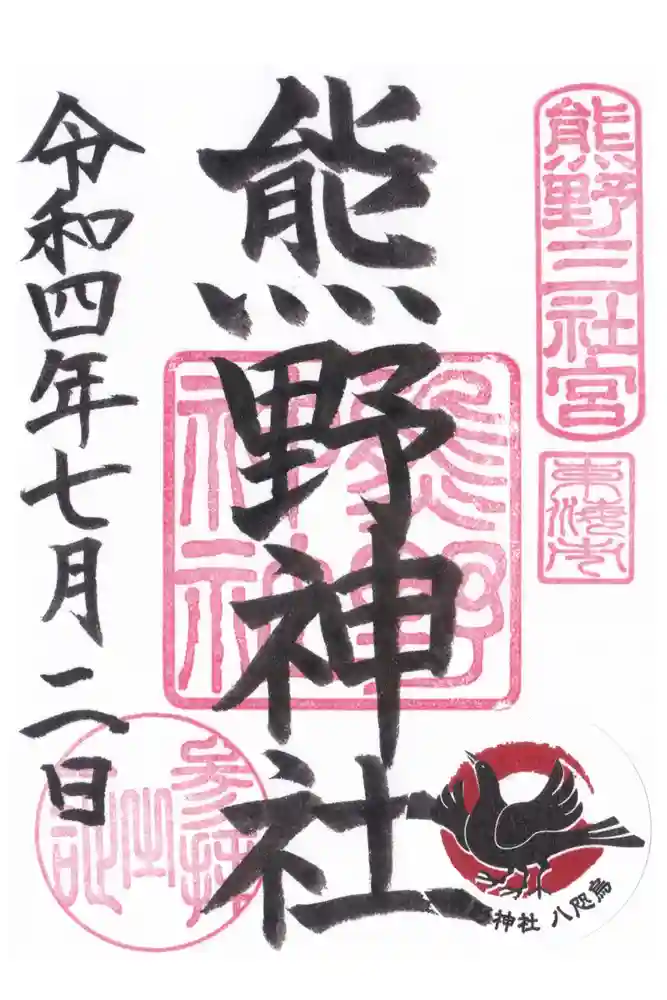 熊野三社宮
東海市
熊野神社
熊野神社
令和四年七月二日
参拝之記
神社 八咫烏